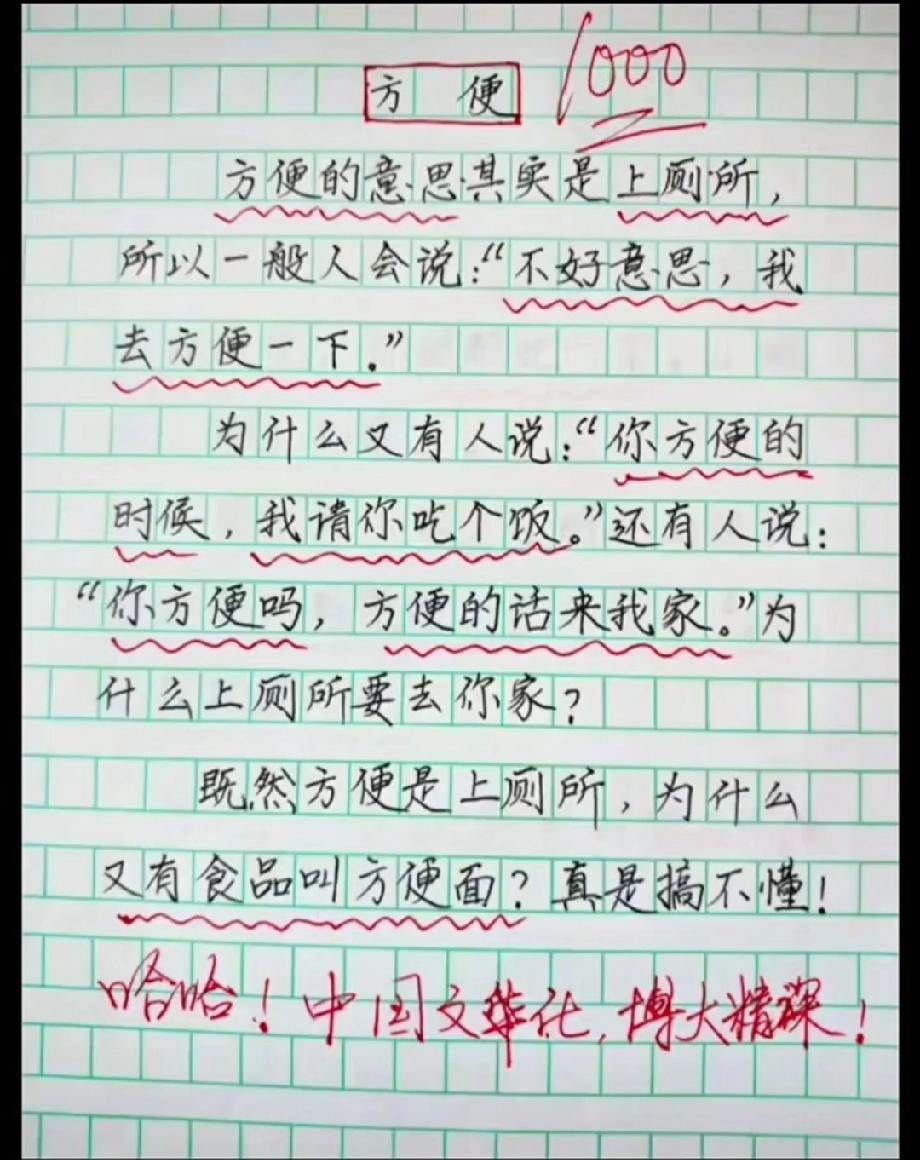 方便 1000
方便的意思其实是上厕所，
所以一般人会说：“不好意思，我
去方便一下。”
为什么又有人说：“你方便的
时候，我请你吃个饭。”还有人说：
“你方便吗，方便的话来我家。”为
什么上厕所要去你家？
既然方便是上厕所，为什么
又有食品叫方便面？真是搞不懂！
哈哈！中国文化，博大精深！